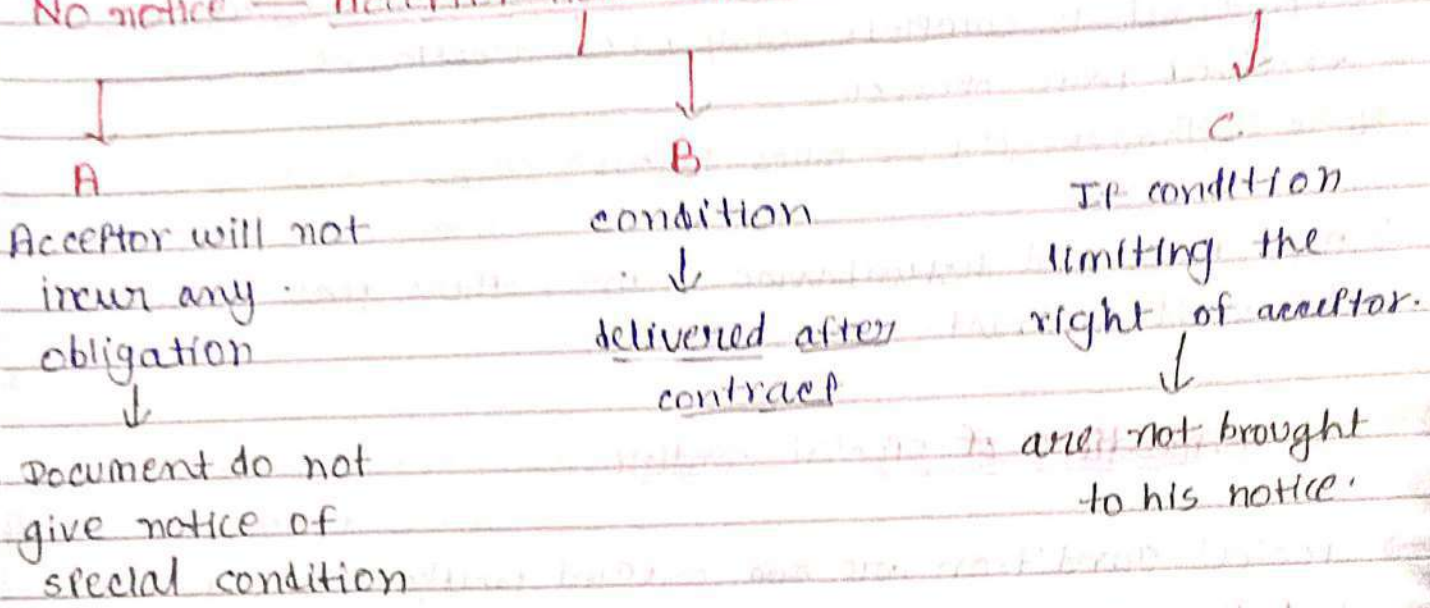 No notice —
A
Acceptor will not
incur any
obligation
↓
Document do not
give notice of
special condition
B
condition
↓
delivered after
contract
C.
If condition
limiting the
right of acceptor.
↓
are not brought
to his notice.